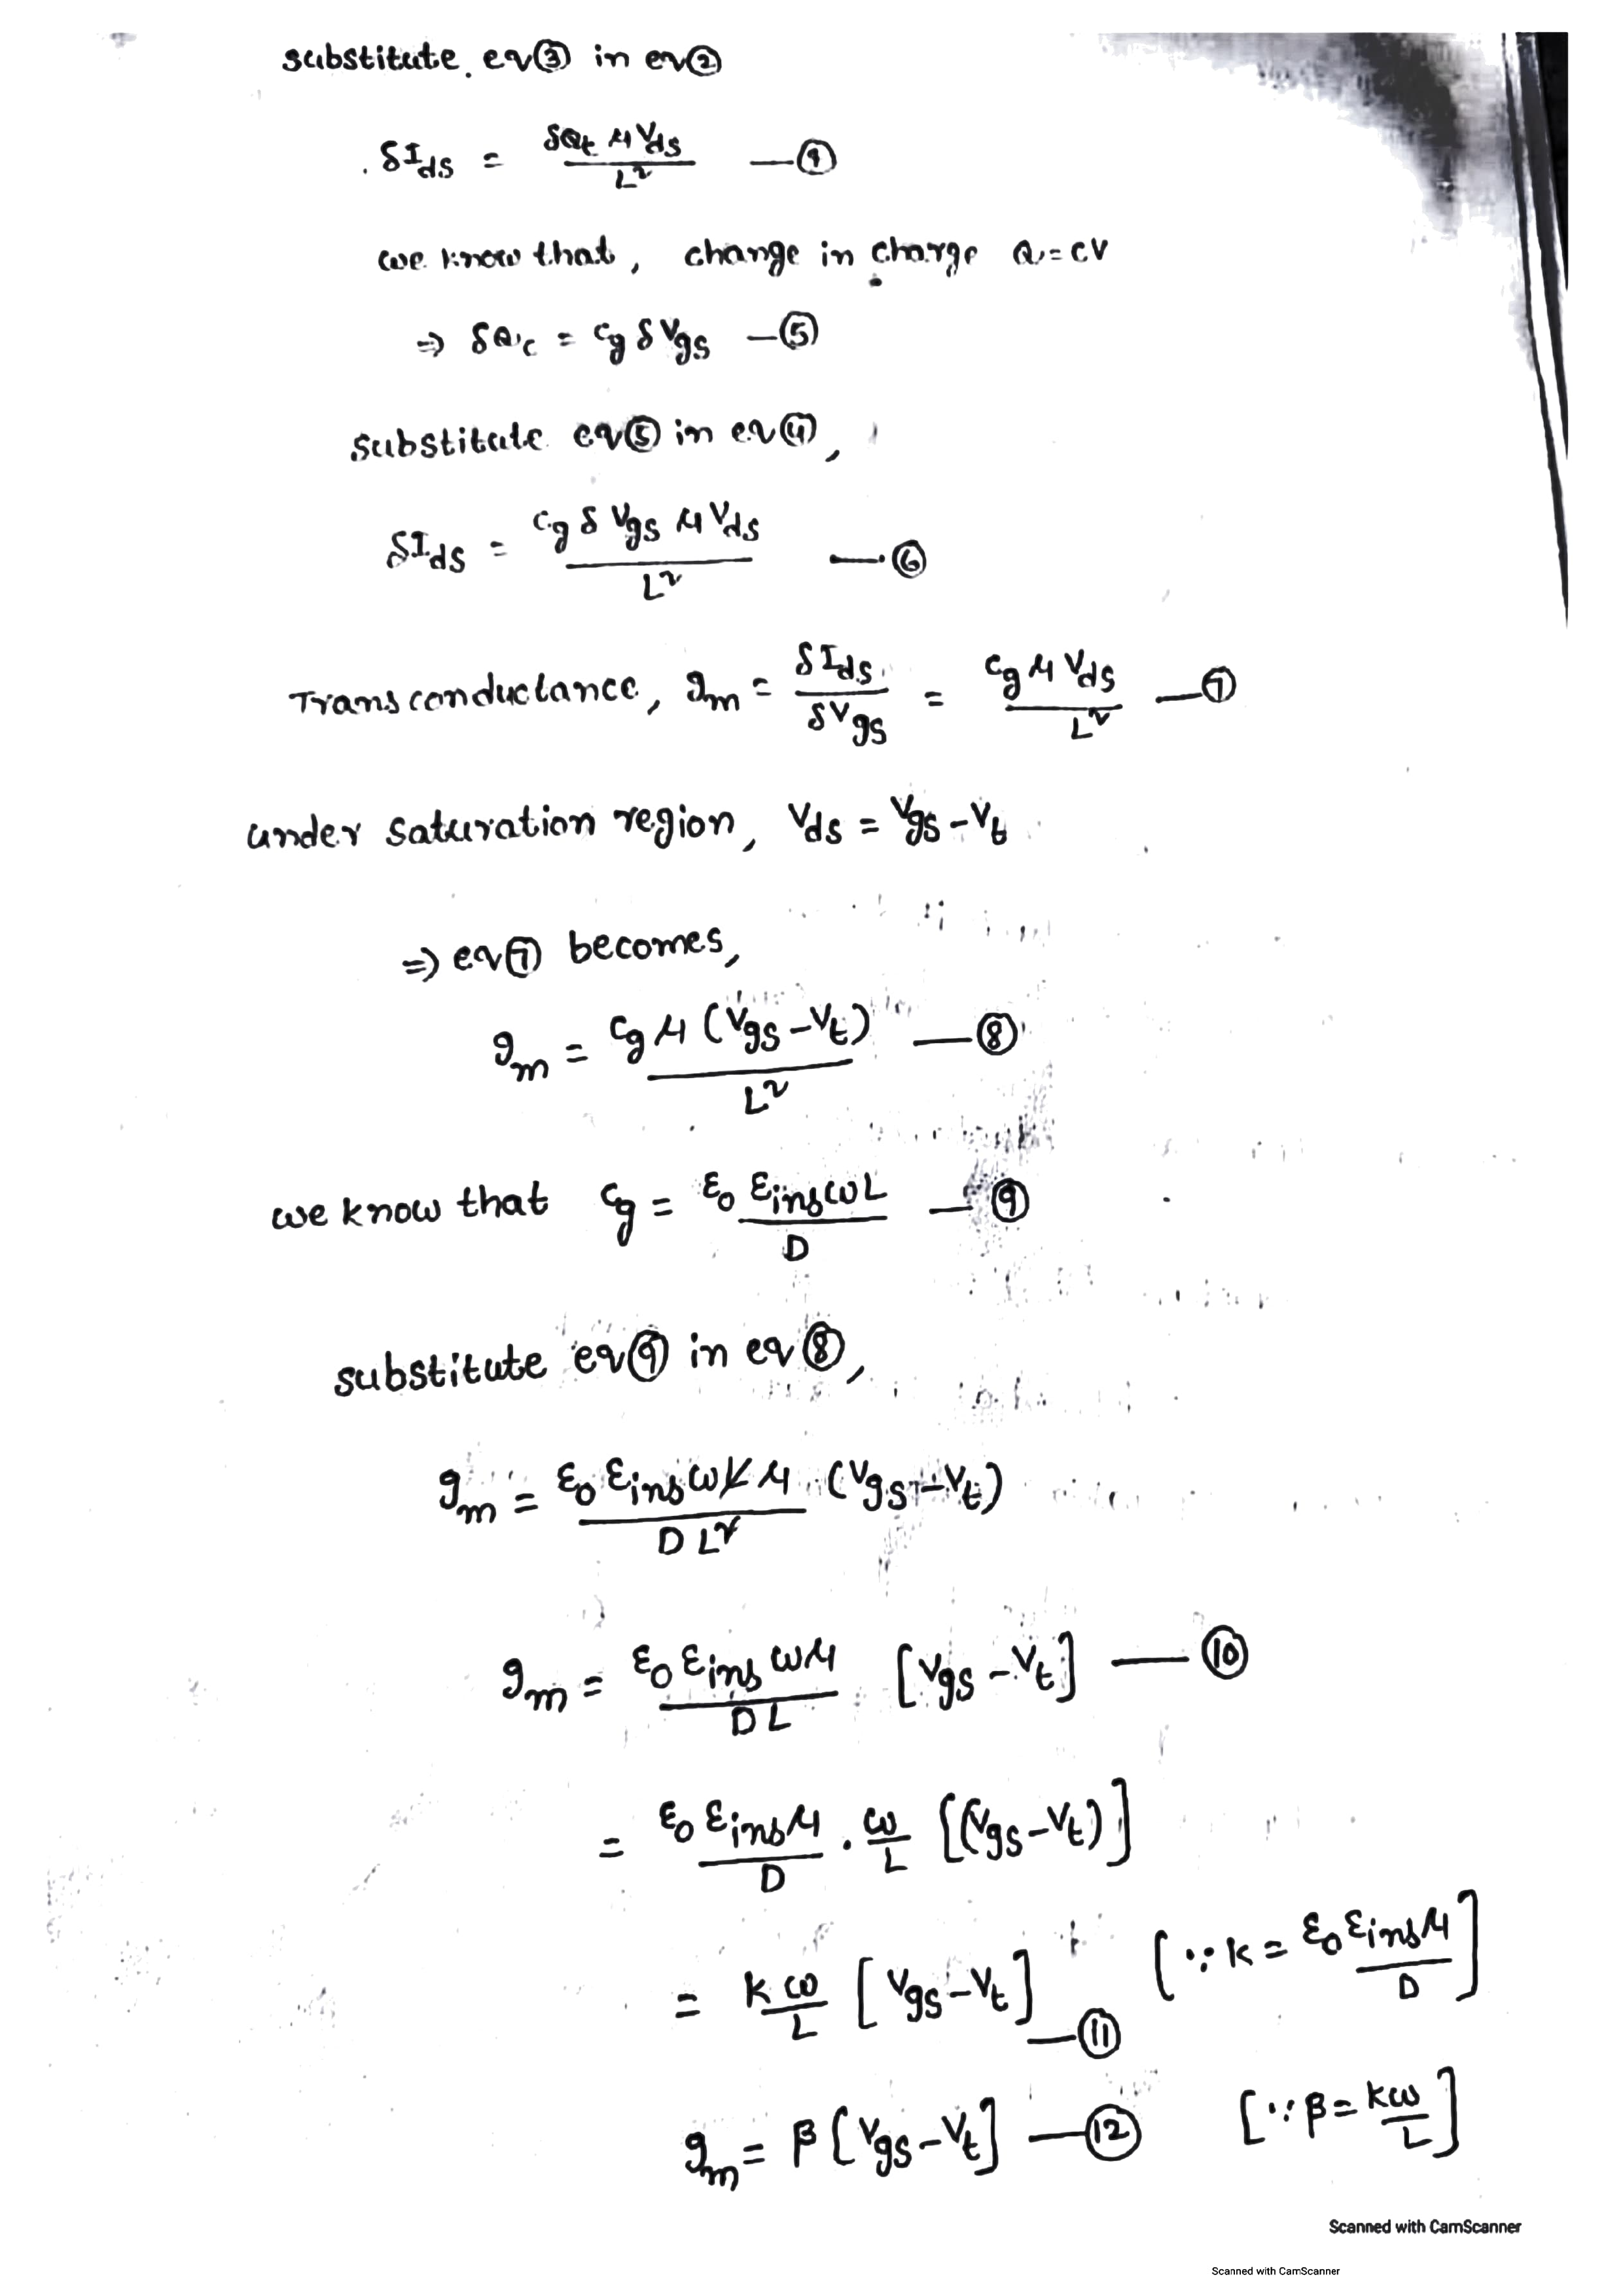 substitute eq③ in eq②
δIds = δQt μVds / L² —④
we know that, change in charge Q=CV
⇒ δQc = Cg δVgs —⑤
substitute eq⑤ in eq④,
δIds = Cg δ Vgs μ Vds / L² —⑥
Transconductance, gm = δIds / δVgs = Cg μ Vds / L² —⑦
under saturation region, Vds = Vgs – Vt
⇒ eq⑦ becomes,
gm = Cg μ (Vgs – Vt) / L² —⑧
we know that Cg = ε0 εins ωL / D —⑨
substitute eq⑨ in eq⑧,
gm = ε0 εins ω L μ / D L² (Vgs – Vt)
gm = ε0 εins ωμ / DL [Vgs – Vt] —⑩
= ε0 εins μ / D . ω / L [(Vgs – Vt)]
= kω / L [Vgs – Vt] —⑪ [∵ k = ε0 εins μ / D]
gm = β [Vgs – Vt] —⑫ [∵ β = kω / L]
Scanned with CamScanner
Scanned with CamScanner